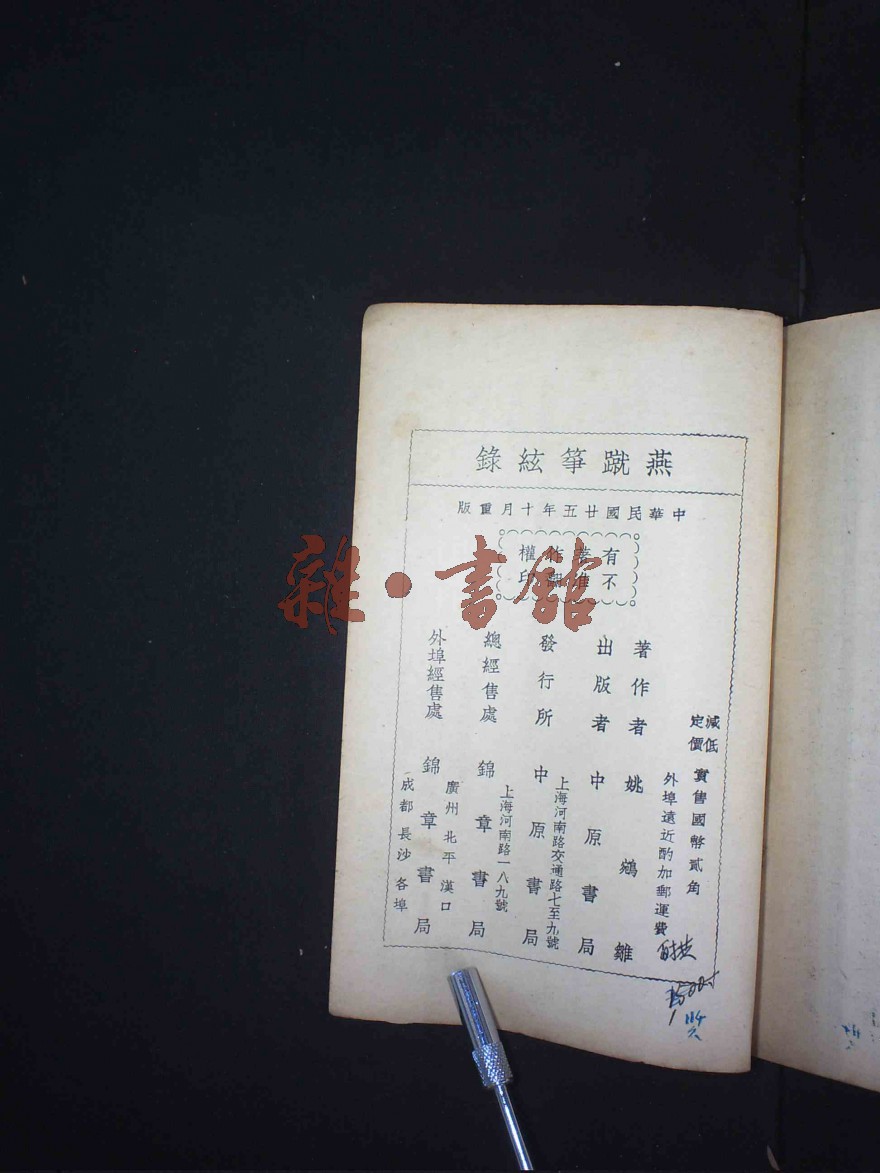 燕蹴箏絃錄
中華民國廿五年十月重版
有著作權
不准翻印
減低定價
實售國幣貳角
外埠遠近酌加郵運費
著作者 姚鵷雛
出版者 中原書局
上海河南路交通路七至九號
發行所 中原書局
上海河南路一八九號
總經售處 錦章書局
廣州北平漢口
外埠經售處 錦章書局
成都長沙各埠
雜·書館